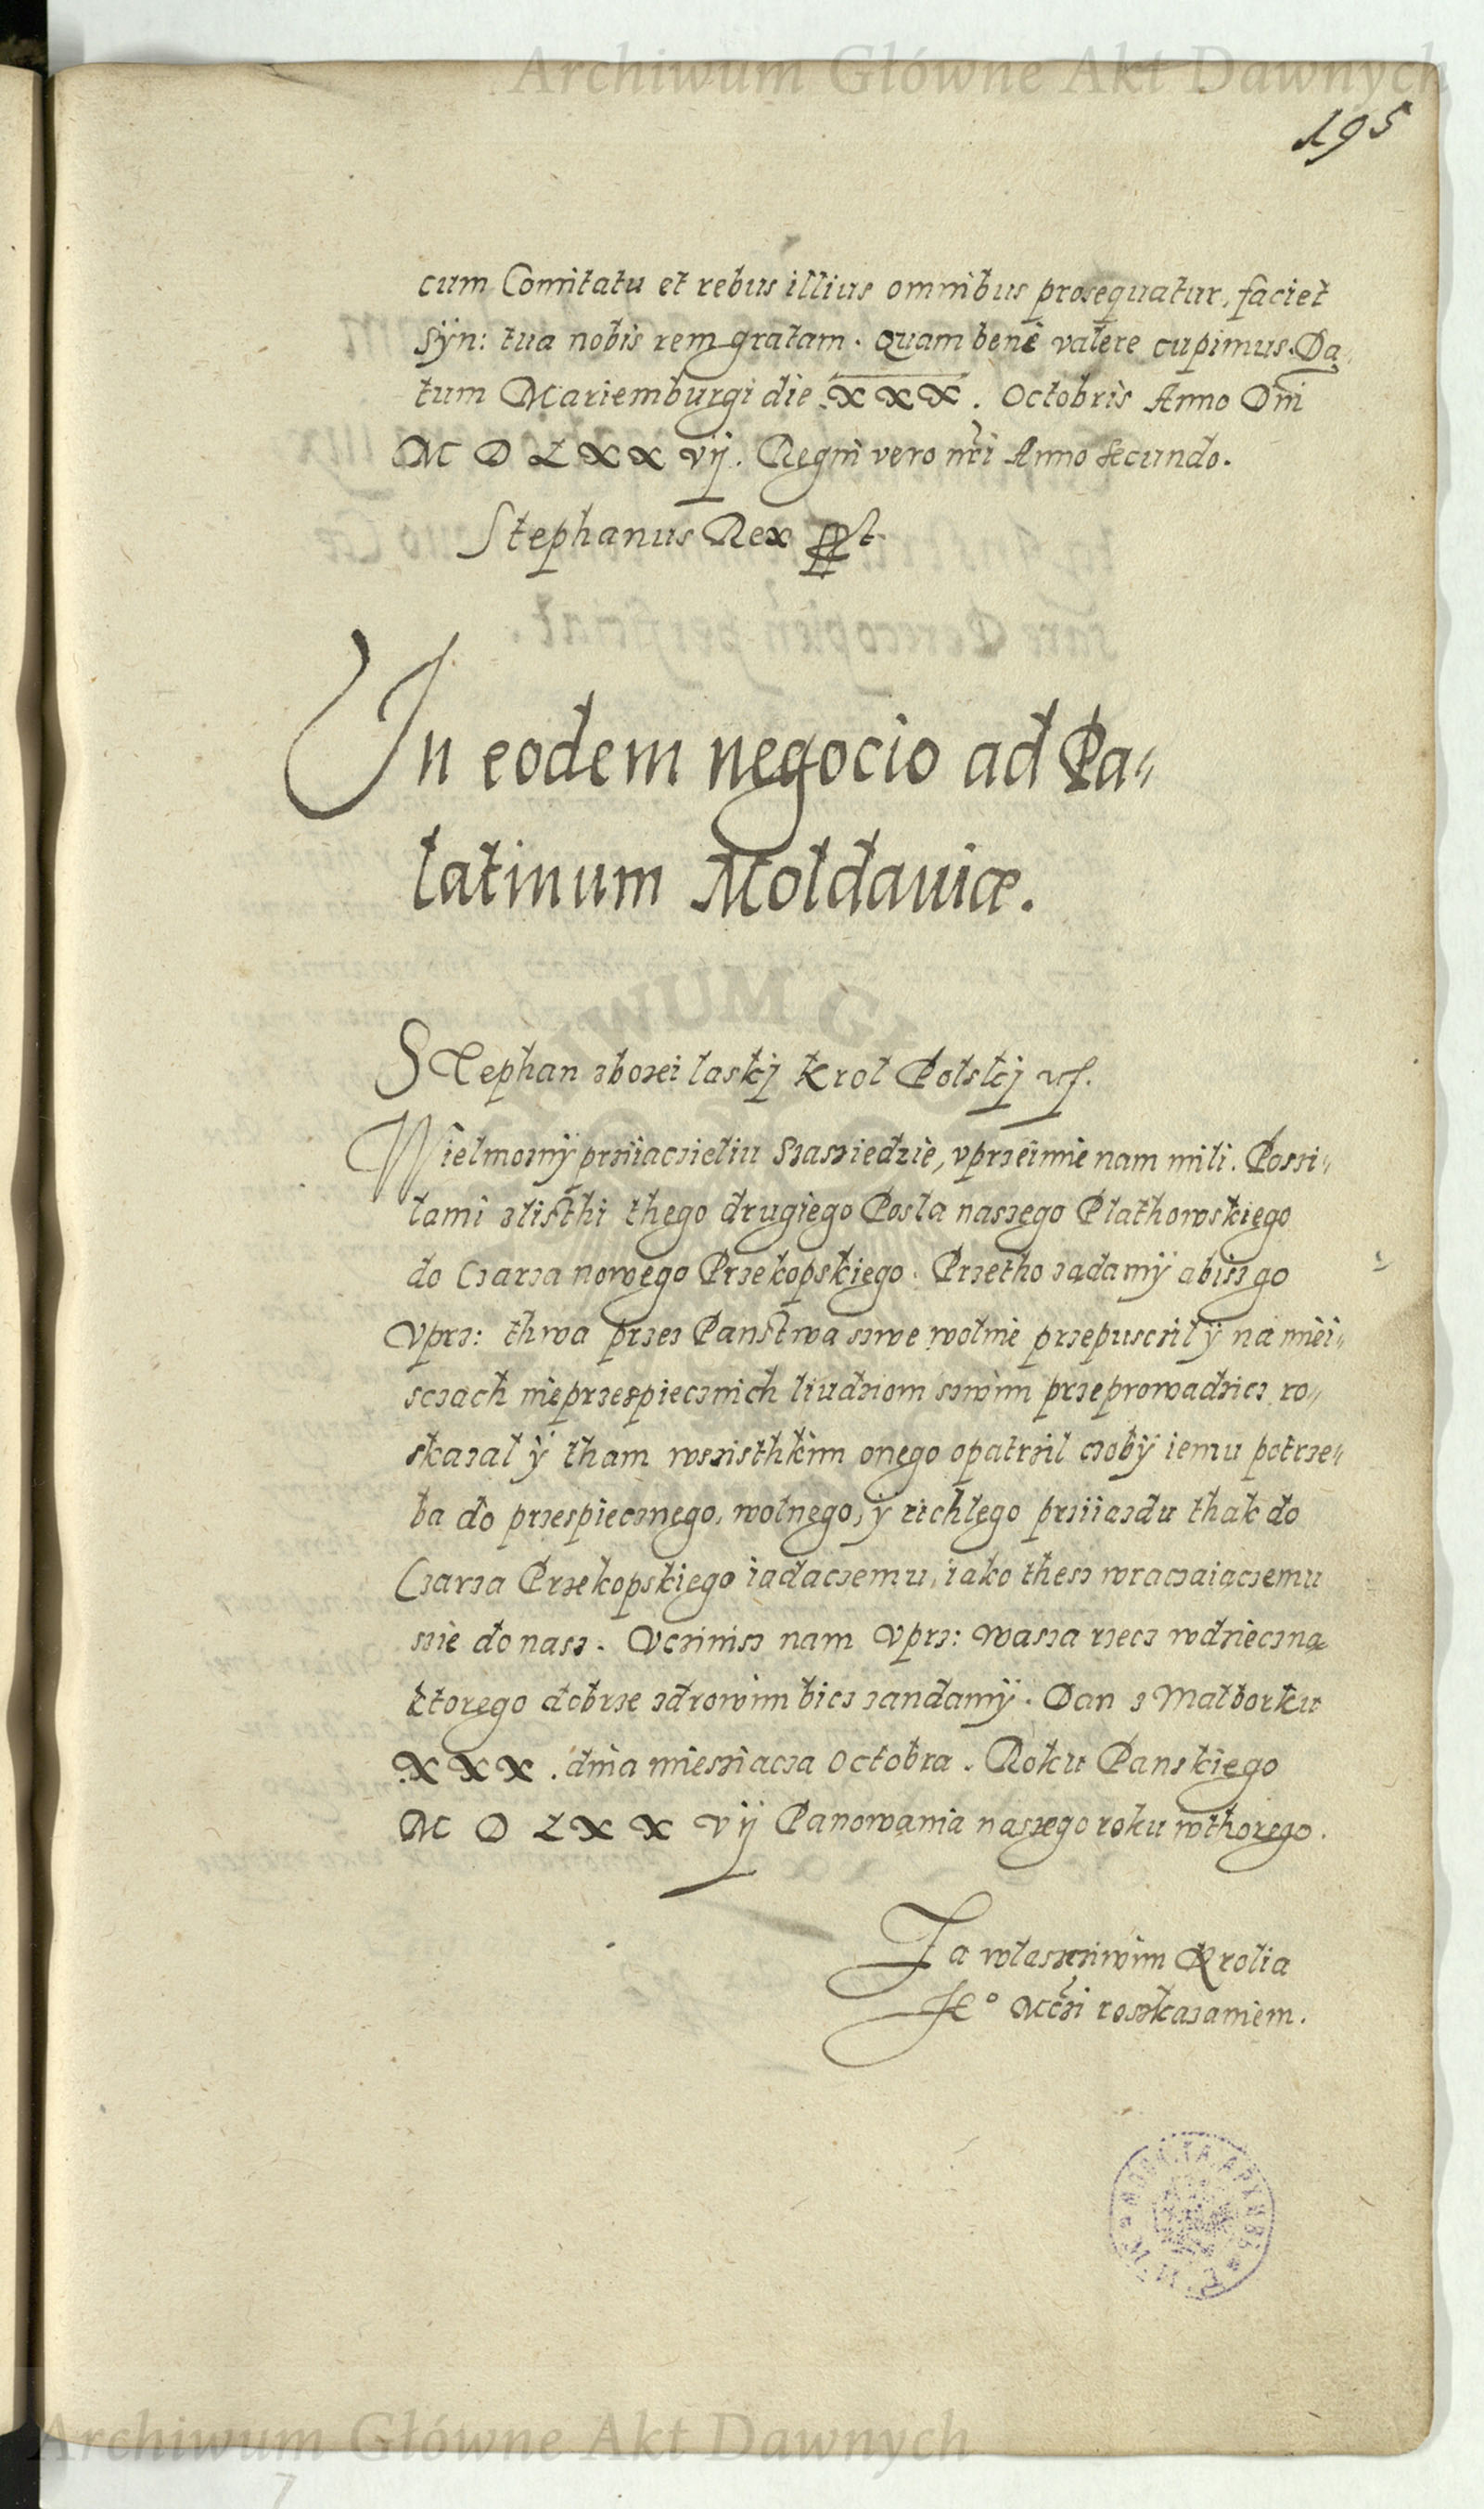 Archiwum Główne Akt Dawnych
195
cum Comitatu et rebus illius omnibus prosequatur, faciet
Syn: tua nobis rem gratam. Quam bene valere cupimus. Da
tum Mariemburgi die XXX. Octobris Anno Dni
M D L X X vij. Regni vero nri Anno Secundo.
Stephanus Rex
In eodem negocio ad Pa-
latinum Moldauiæ.
Stephan zbozei laskj Krol Polskj
Wielmozny prziiaczieliu Szasziedzie, vprzeimie nam mili. Poszi-
lami zlisthi thego drugiego Posla naszego Plathowskiego
do Czarza nowego Przekopskiego. Przetho ządamy abisz go
Vprz: thwa przez Panstwa szwe wolnie przepuscził y na miei-
sczach nieprzespiecznich liudziom szwim przeprowadzicz ro-
skazal ÿ tham wszisthkim onego opatrził czoby iemu potrze-
ba do przespiecznego, wolnego, ÿ richlego prziiazdu thak do
Czarza Przekopskiego iadaczemu, iako thesz wraczaiączemu
szie do nasz. Vczinisz nam Vprz: wasza rzecz wdzieczną
ktorego dobrze zdrowim bicz zandamÿ. Dan z Malborku
XXX. dnia miesziącza Octobra. Roku Panskiego
M D L X X vij Panowania naszego roku wthorego.
Za wlaszcziwim Krolia
Je° Mczi roszkazaniem.
Archiwum Główne Akt Dawnych